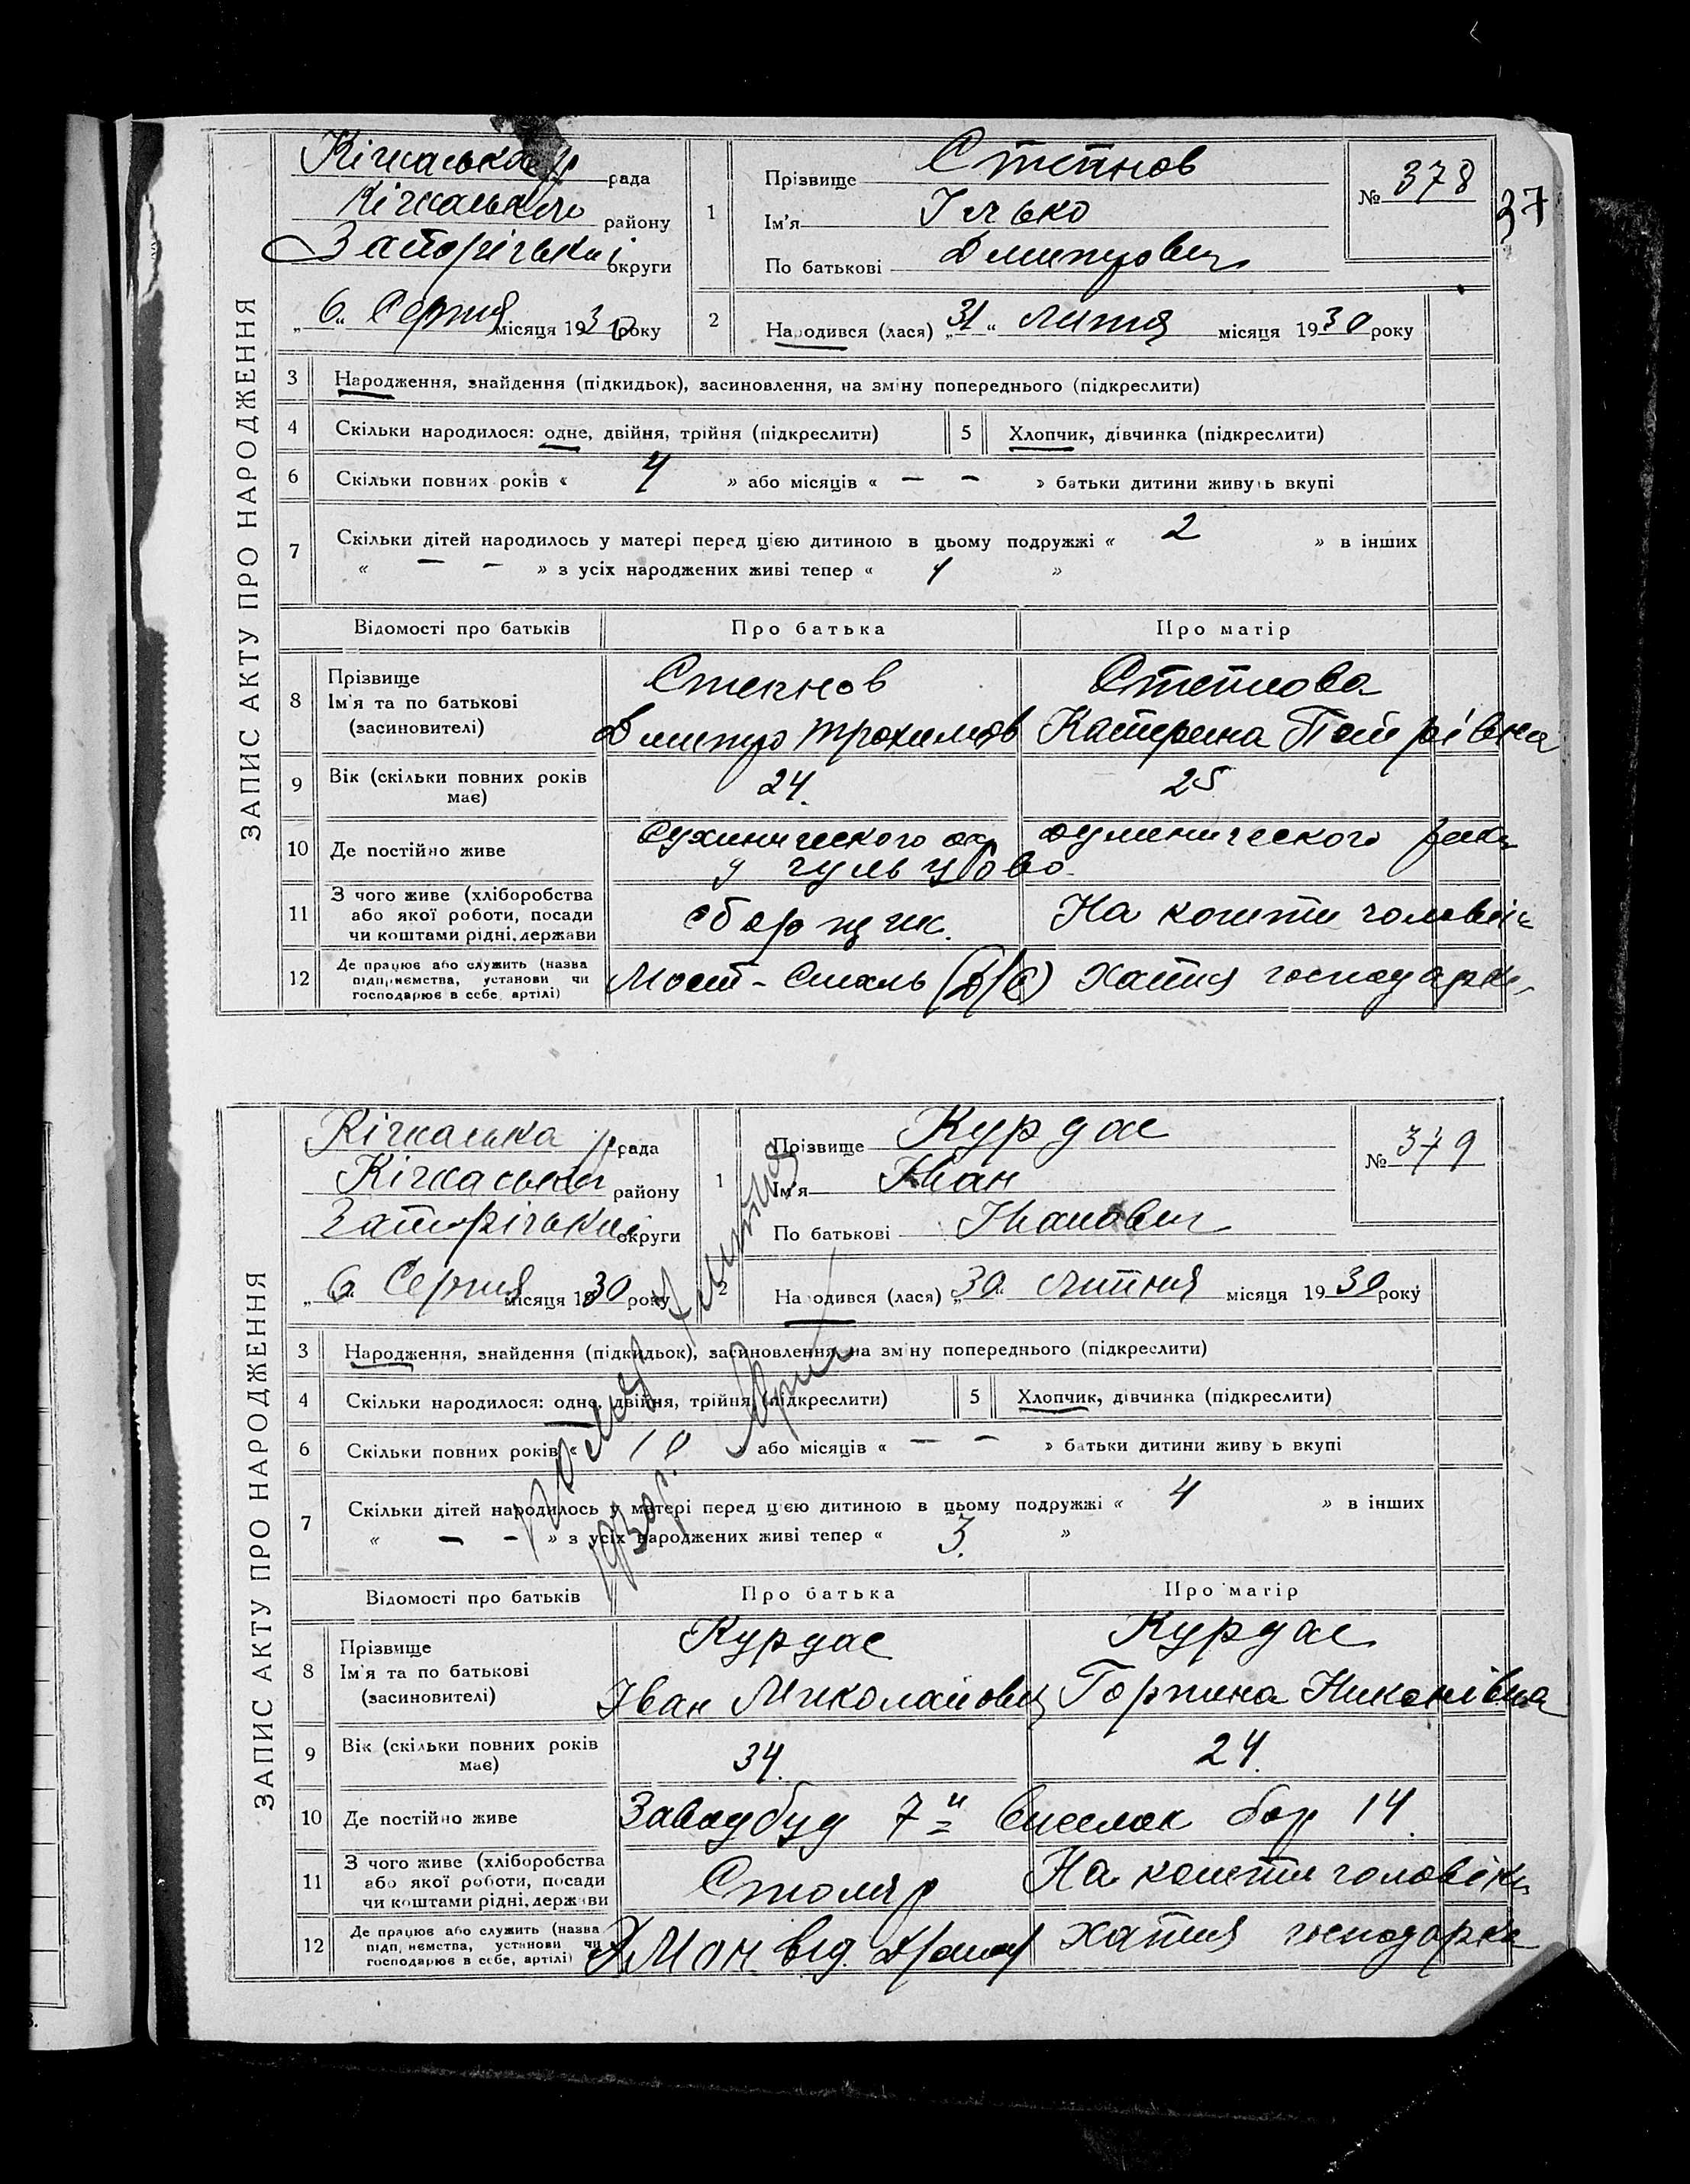 ЗАПИС АКТУ ПРО НАРОДЖЕННЯ
Кічкаська рада
Кічкаського району
Запорізької округи
„6“ Серпня місяця 1930 року
1 Прізвище Степнов
Ім'я Ілько
По батькові Дмитрович
№ 378
37
2 Народився (лася) „31“ липня місяця 1930 року
3 Народження, знайдення (підкидьок), засиновлення, на зміну попереднього (підкреслити)
4 Скільки народилося: одне, двійня, трійня (підкреслити) 5 Хлопчик, дівчинка (підкреслити)
6 Скільки повних років « 4 » або місяців « — — » батьки дитини живуть вкупі
7 Скільки дітей народилось у матері перед цією дитиною в цьому подружжі « 2 » в інших
« — — » з усіх народжених живі тепер « »
Відомості про батьків Про батька Про матір
8 Прізвище
Ім'я та по батькові
(засиновителі)
Степнов
Дмитро Трохимов
Степнова
Катерина Петрівна
9 Вік (скільки повних років має) 24. 25
10 Де постійно живе Сухинического
11 З чого живе (хліборобства
або якої роботи, посади
чи коштами рідні, держави
сборщик. На кошти чоловіка
12 Де працює або служить (назва
підприємства, установи чи
господарює в себе, артілі)
Мост-Сталь (Д/С) Хатня господарка
ЗАПИС АКТУ ПРО НАРОДЖЕННЯ
Кічкаська рада
Кічкаського району
Запорізької округи
„6“ Серпня місяця 1930 року
1 Прізвище Курдас
Ім'я Іван
По батькові Іванович
№ 379
2 Народився (лася) „30“ липня місяця 1930 року
3 Народження, знайдення (підкидьок), засиновлення, на зміну попереднього (підкреслити)
4 Скільки народилося: одне, двійня, трійня (підкреслити) 5 Хлопчик, дівчинка (підкреслити)
6 Скільки повних років « 10 або місяців « — — » батьки дитини живуть вкупі
7 Скільки дітей народилось у матері перед цією дитиною в цьому подружжі « 4 » в інших
« — — » з усіх народжених живі тепер « 3. »
1930 р.
Відомості про батьків Про батька Про матір
8 Прізвище
Ім'я та по батькові
(засиновителі)
Курдас
Іван Миколайович
Курдас
Горпина Никонівна
9 Вік (скільки повних років має) 34. 24.
10 Де постійно живе Заводбуд 7й Виселок бар 14.
11 З чого живе (хліборобства
або якої роботи, посади
чи коштами рідні, держави
Столяр На кошти чоловіка
12 Де працює або служить (назва
підприємства, установи чи
господарює в себе, артілі)
від. хатня господарка